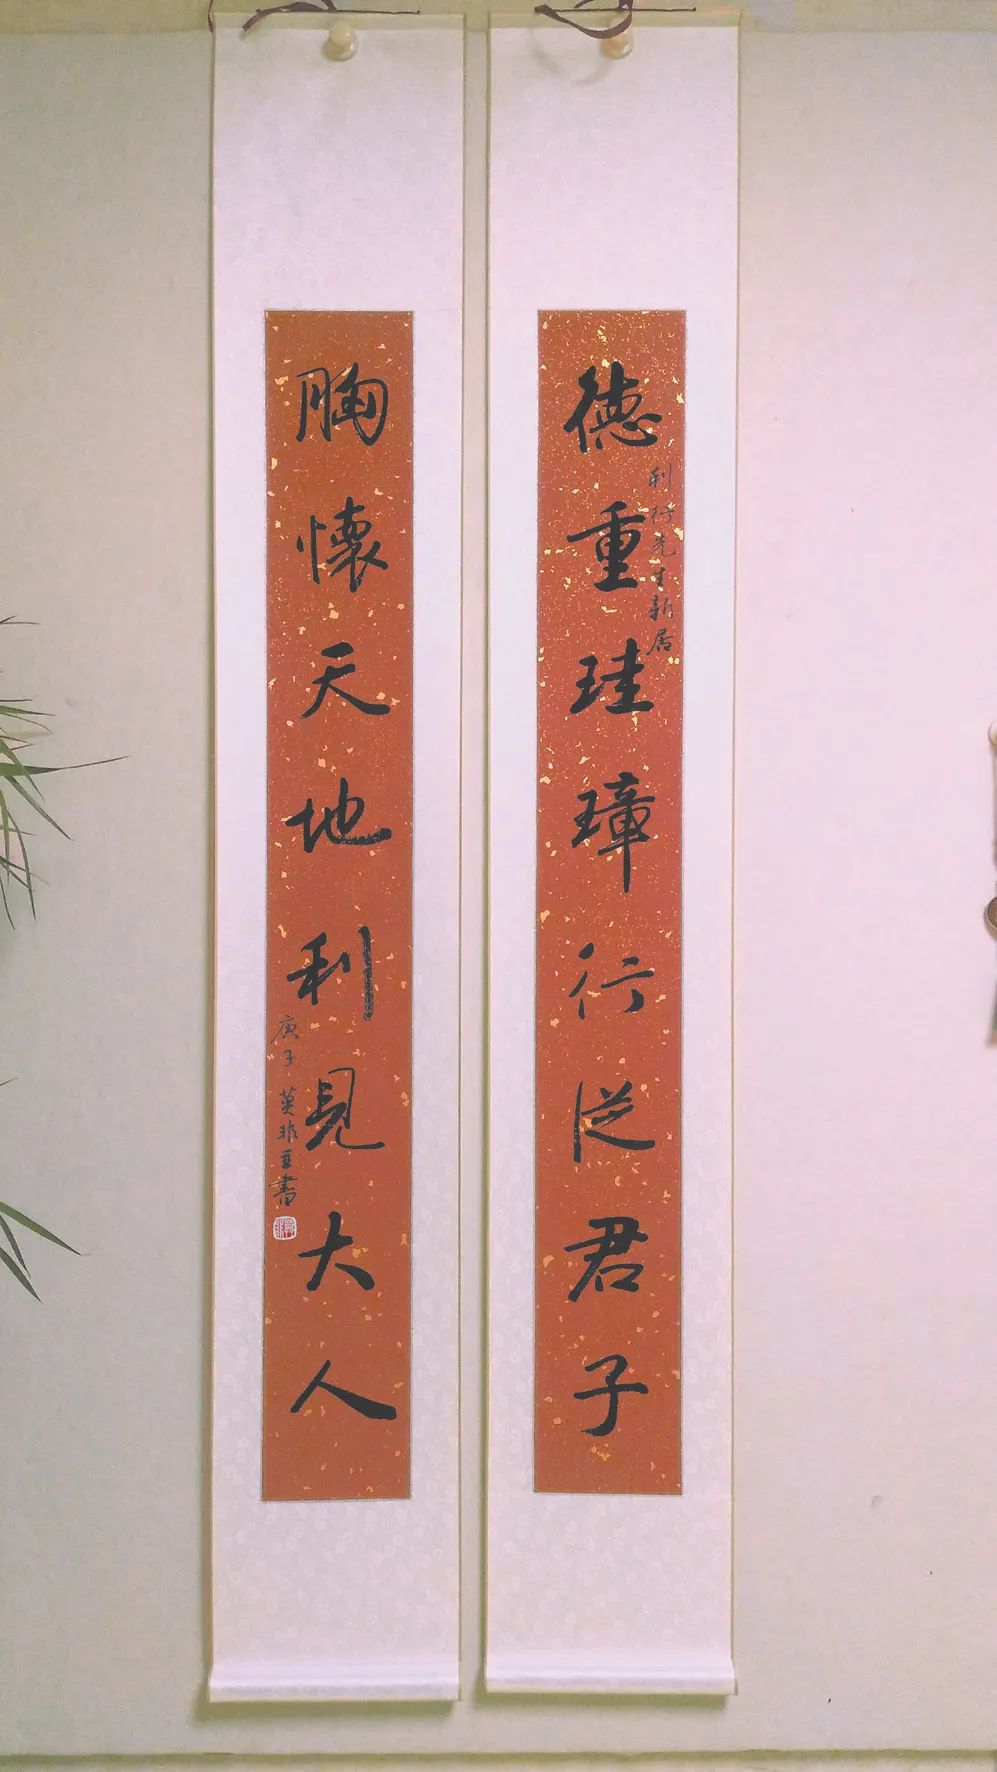 德重珪璋行從君子
利行先生新居
胸懷天地利見大人
庚子 莫非書